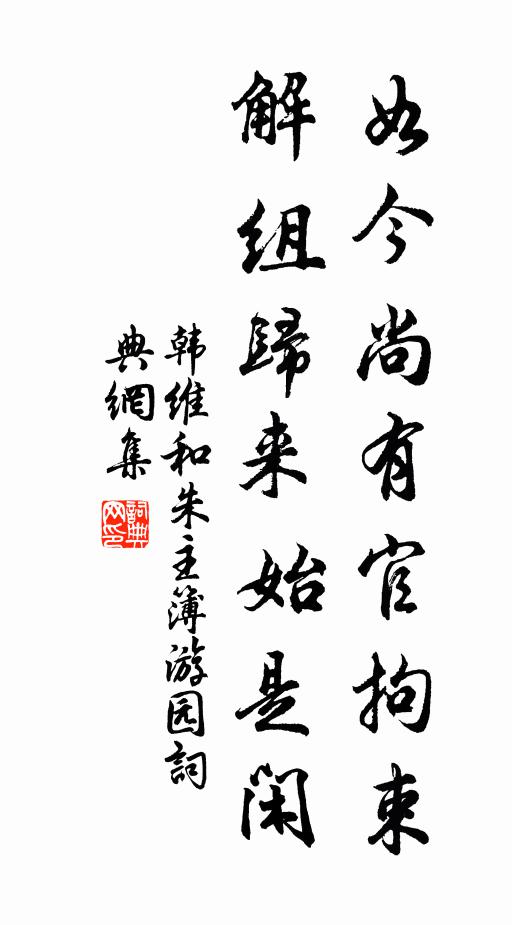 如今尚有官拘束
解组歸来始是闲
韩维和朱主簿游园詞
典網集
詞典网印